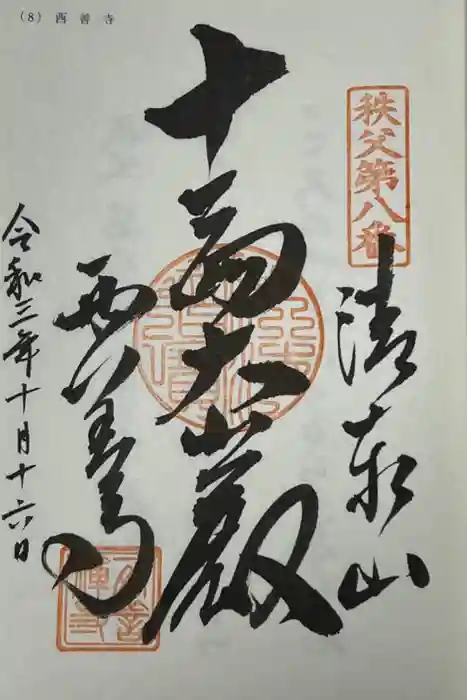 (8) 西善寺
秩父第八番
清泰山
十一面大悲殿
西善寺
令和三年十月十六日